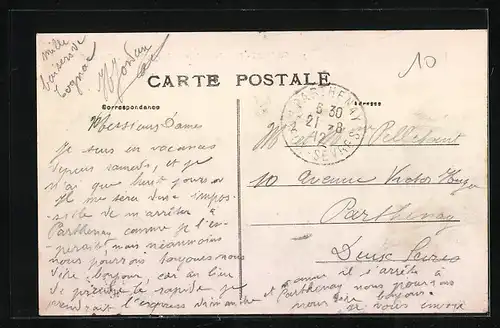 mille
baisers de
Cognac
MJordan
10
CARTE POSTALE
Correspondance
Adresse
PARTHENAY
6 30
21 - 8
12
SEVRES
Messieurs Dames
Je suis en vacances
depuis samedi, et je
n'ai que huit jours
Il me sera donc impos-
sible de m'arrêter à
Parthenay comme je l'es-
perait mais néanmoins
nous pourrons toujours nous
dire bonjour, car au lieu
de prendre le rapide je
prendrait l'express dimanche
et comme il s'arrête à
Parthenay nous pourrons
nous dire bonjour
je vous envoie
M et M Pellefort
10 Avenue Victor Hugo
Parthenay
Deux Sèvres